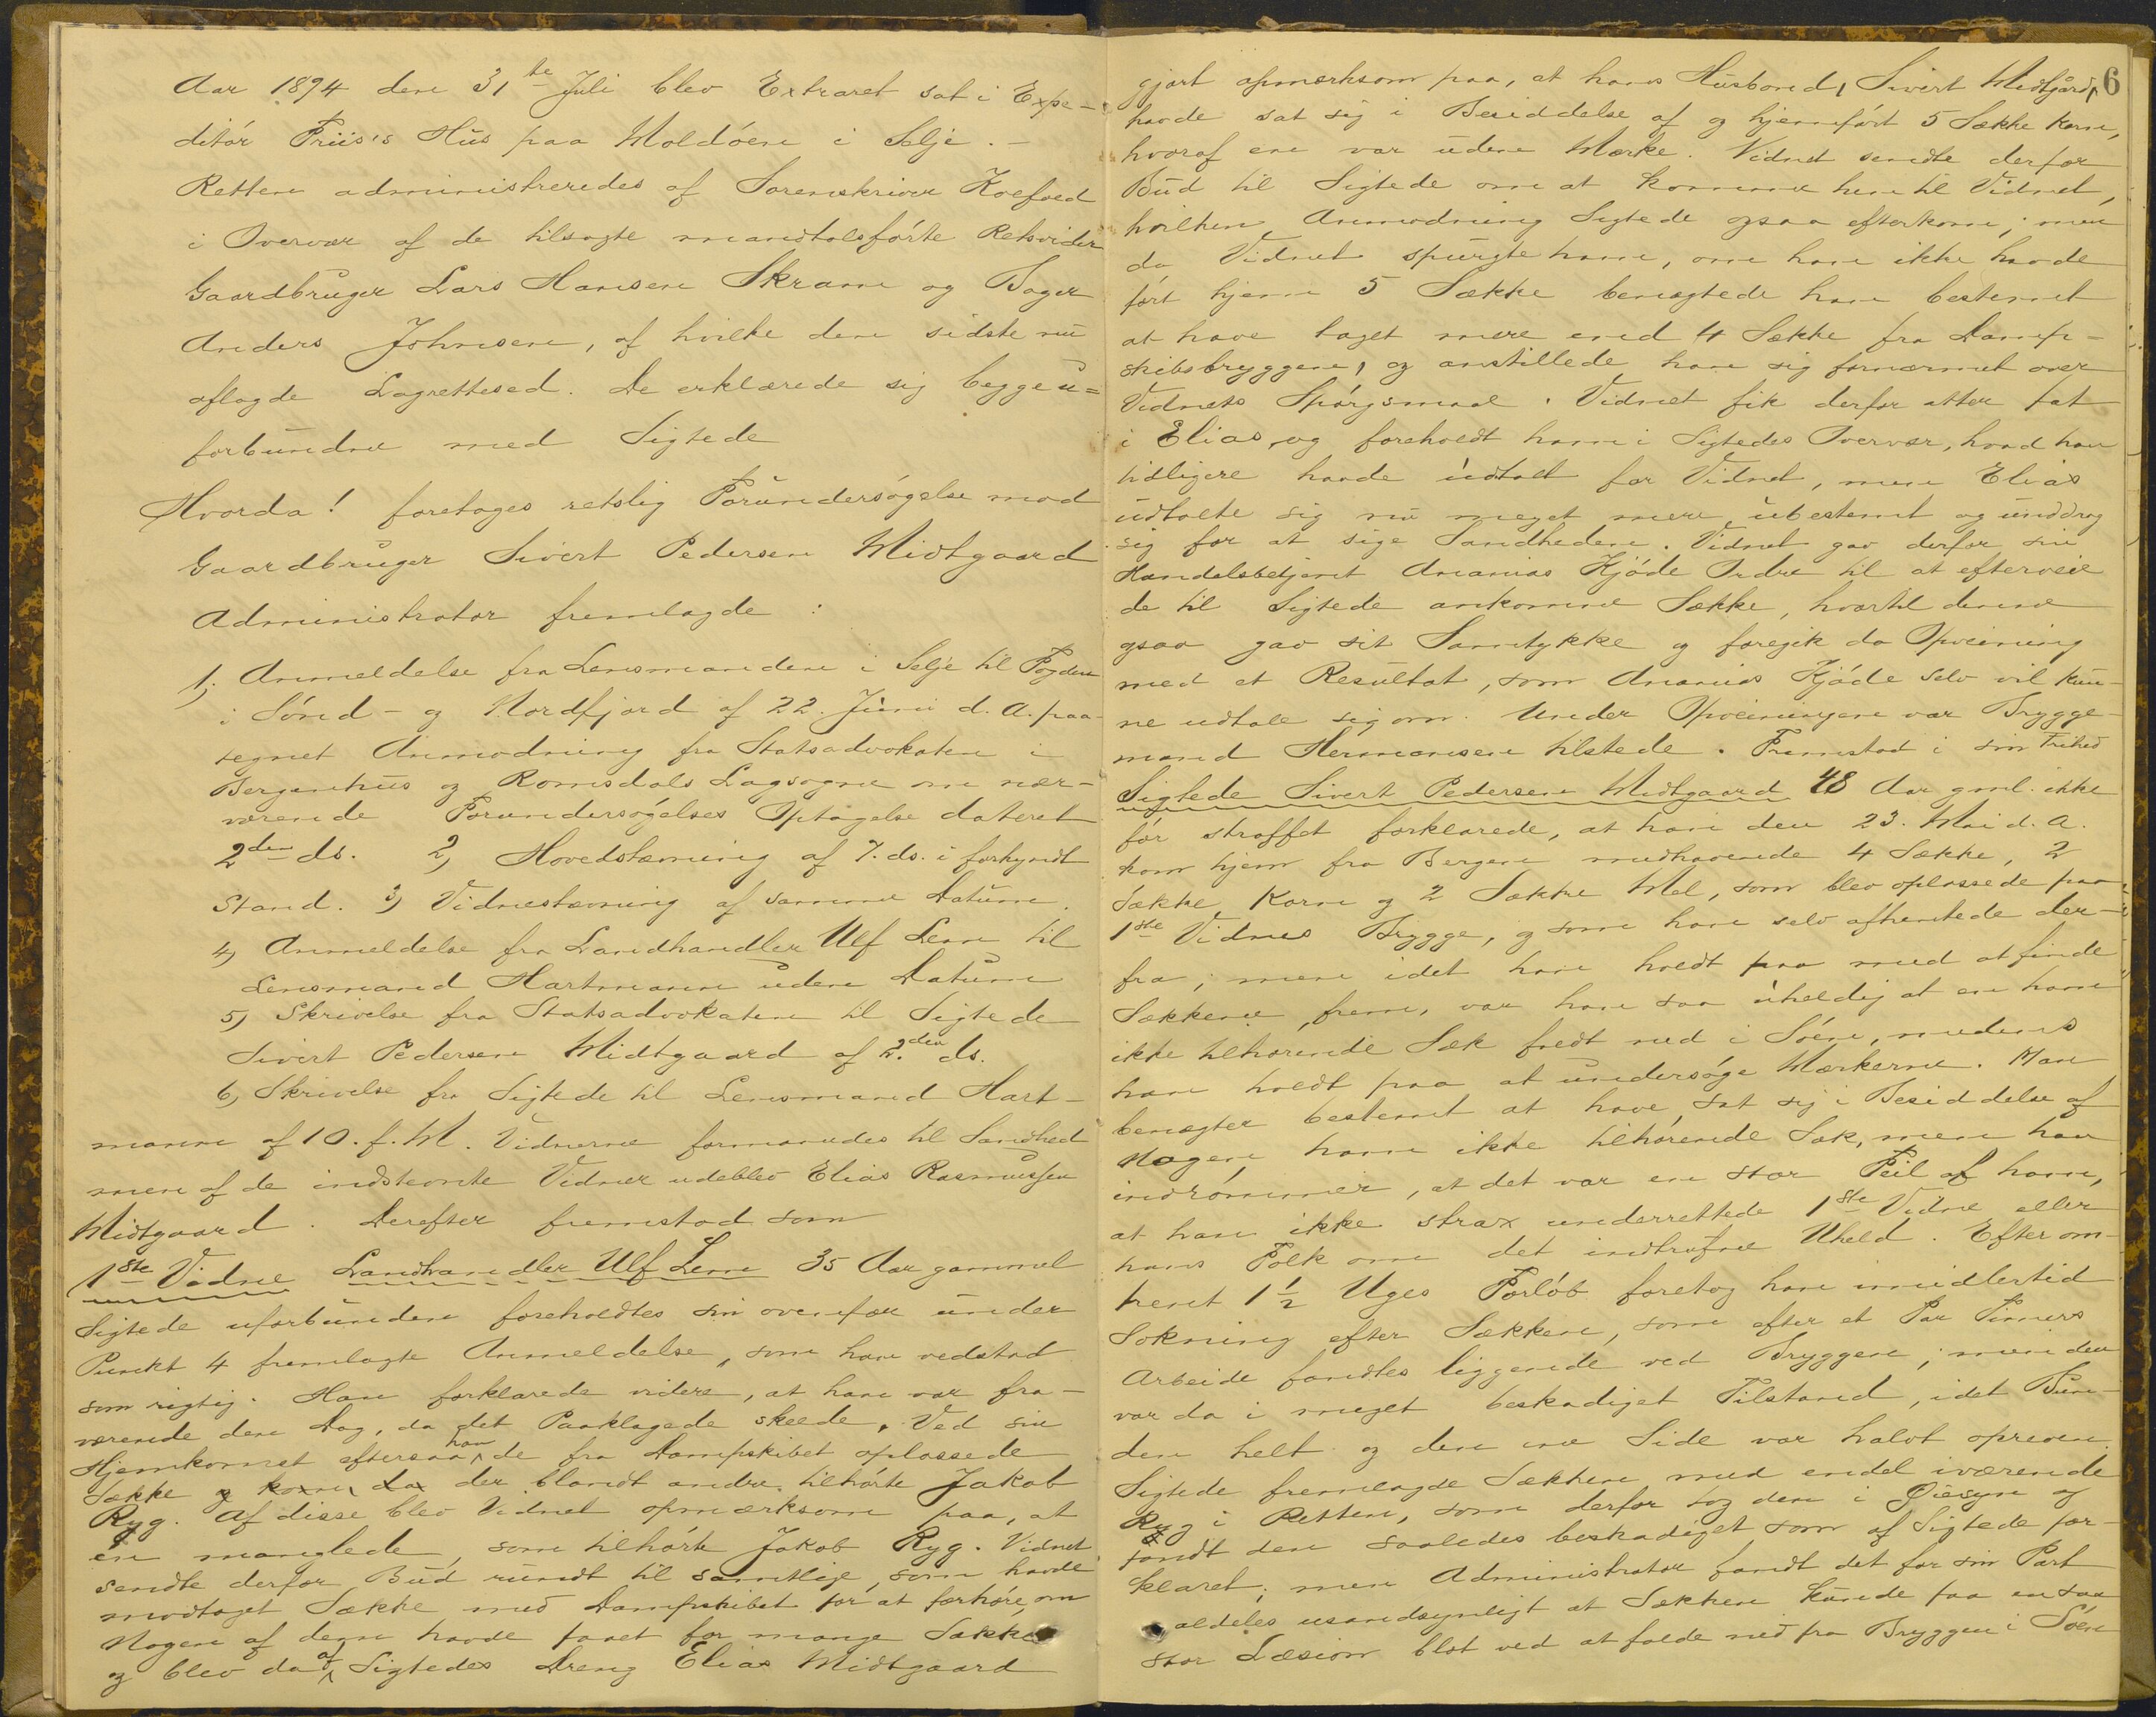 Aar 1894 den 31te Juli blev Extraret sat i Expe-
ditór Friis's Hus paa Moldóen i Selje. -
Retten administreredes af Sorenskriver Koefoed
i Overvær af de tilsagte mandtalsfórte Retsvidner
Gaardbruger Lars Hansen Skram og Bager
Anders Johnsen, af hvilke den sidste nu
aflagde Lagrettesed. De erklærede sig begge u=
forbundne med Sigtede
Hvorda! foretages retslig Forundersógelse mod
Gaardbruger Sivert Pedersen Midtgaard
Administrator fremlagde :
1, Anmeldelse fra Lensmanden i Selje til Fogden
i Sónd- og Nordfjord af 22. Juni d. A. paa-
tegnet Anmodning fra Statsadvokaten i
Bergenhus og Romsdals Lagsogne om nær-
værende Forundersógelses Optagelse dateret
2den ds. 2, Hovedstævning af 7. ds. i forkyndt
Stand. 3, Vidnestævning af samme Datum.
4, Anmeldelse fra Landhandler Ulf Lem til
Lensmand Hartmann uden Datum
5, Skrivelse fra Statsadvokaten til Sigtede
Sivert Pedersen Midtgaard af 2den ds.
6, Skrivelse fra Sigtede til Lensmand Hart-
mann af 10. f. M. Vidnerne formanedes til Sandhed
men af de indstevnte Vidner udeblev Elias Rasmussen
Midtgaard. Derefter fremstod som
1ste Vidne Landhandler Ulf Lem 35 Aar gammel
Sigtede uforbunden foreholdtes sin ovenfor under
Punkt 4 fremlagte Anmeldelse, som han vedstod
som rigtig. Han forklarede videre, at han var fra-
værende den Dag, da det Paaklagede skede. Ved sin
Hjemkomst eftersaa han de fra Dampskibet oplossede
Sække og korn, da der blandt andre tilhórte Jakob
Ryg. Af disse blev Vidnet opmærksom paa, at
én manglede, som tilhórte Jakob Ryg. Vidnet
sendte derfor Bud rundt til samtlige, som havde
modtaget Sække med Dampskibet for at forhóre, om
Nogen af dem havde faaet for mange Sække
og blev da af Sigtedes Dreng Elias Midtgaard
6
gjort opmærksom paa, at hans Husbond, Sivert Midtgård,
havde sat sig i Besiddelse af og hjemfórt 5 Sække Korn,
hvoraf en var uden Mærke. Vidnet sendte derfor
Bud til Sigtede om at komme hen til Vidnet,
hvilken Anmodning Sigtede ogsaa efterkom; men
da Vidnet spurgte ham, om han ikke havde
fórt hjem 5 Sække benægtede han bestemt
at have taget mere end 4 Sække fra Damp-
skibsbryggen, og anstillede han sig fornærmet over
Vidnets Spórgsmaal. Vidnet fik derfor atter fat
i Elias, og foreholdt ham i Sigtedes Overvær, hvad han
tidligere havde udtalt for Vidnet, men Elias
udtalte sig nu meget mere ubestemt og unddrog
sig for at sige Sandheden. Vidnet gav derfor sin
Handelsbetjent Ananias Kjóde Ordre til at efterveie
de til Sigtede ankomne Sække, hvortil denne
ogsaa gav sit Samtykke og foregik da Opveining
med et Resultat, som Ananias Kjóde selv vil kun-
ne udtale sig om. Under Opveiningen var Brygge-
mand Hermansen tilstede. Fremstod i sin Frihed
Sigtede Sivert Pedersen Midtgaard 48 Aar gml. ikke
fór straffet forklarede, at han den 23. Mai d. A.
kom hjem fra Bergen medhavende 4 Sække, 2
Sække Korn og 2 Sække Mel, som blev oplossede paa
1ste Vidnes Brygge, og som han selv afhentede der-
fra; men idet han holdt paa med at finde
Sækkene frem, var han saa uheldig at en ham
ikke tilhørende Sæk fuldt ned i Sóen, medens
han holdt paa at undersóge Mærkerne. Han
benægter bestemt at have sat sig i Besiddelse af
Nogen ham ikke tilhórende Sæk, men han
indrómmer, at det var en stor Feil af ham,
at han ikke strax underrettede 1ste Vidne eller
hans Folk om det indtrufne Uheld. Efter om-
trent 1½ Uges Forlób foretog han imidlertid
Sokning efter Sækken, som efter et Par Timers
Arbeide fandtes liggende ved Bryggen; men den
var da i meget beskadiget Tilstand, idet Bun-
den helt og den ene Side var halvt opreven.
Sigtede fremlagde Sækken med endel iværende
Rug i Retten, som derfor tog den i Øiesyn og
fandt den saaledes beskadiget som af Sigtede for-
klaret; men Administrator fandt det for sin Part
aldeles usandsynligt at Sækken kunde faa en saa
stor Læsion blot ved at falde ned fra Bryggen i Sóen